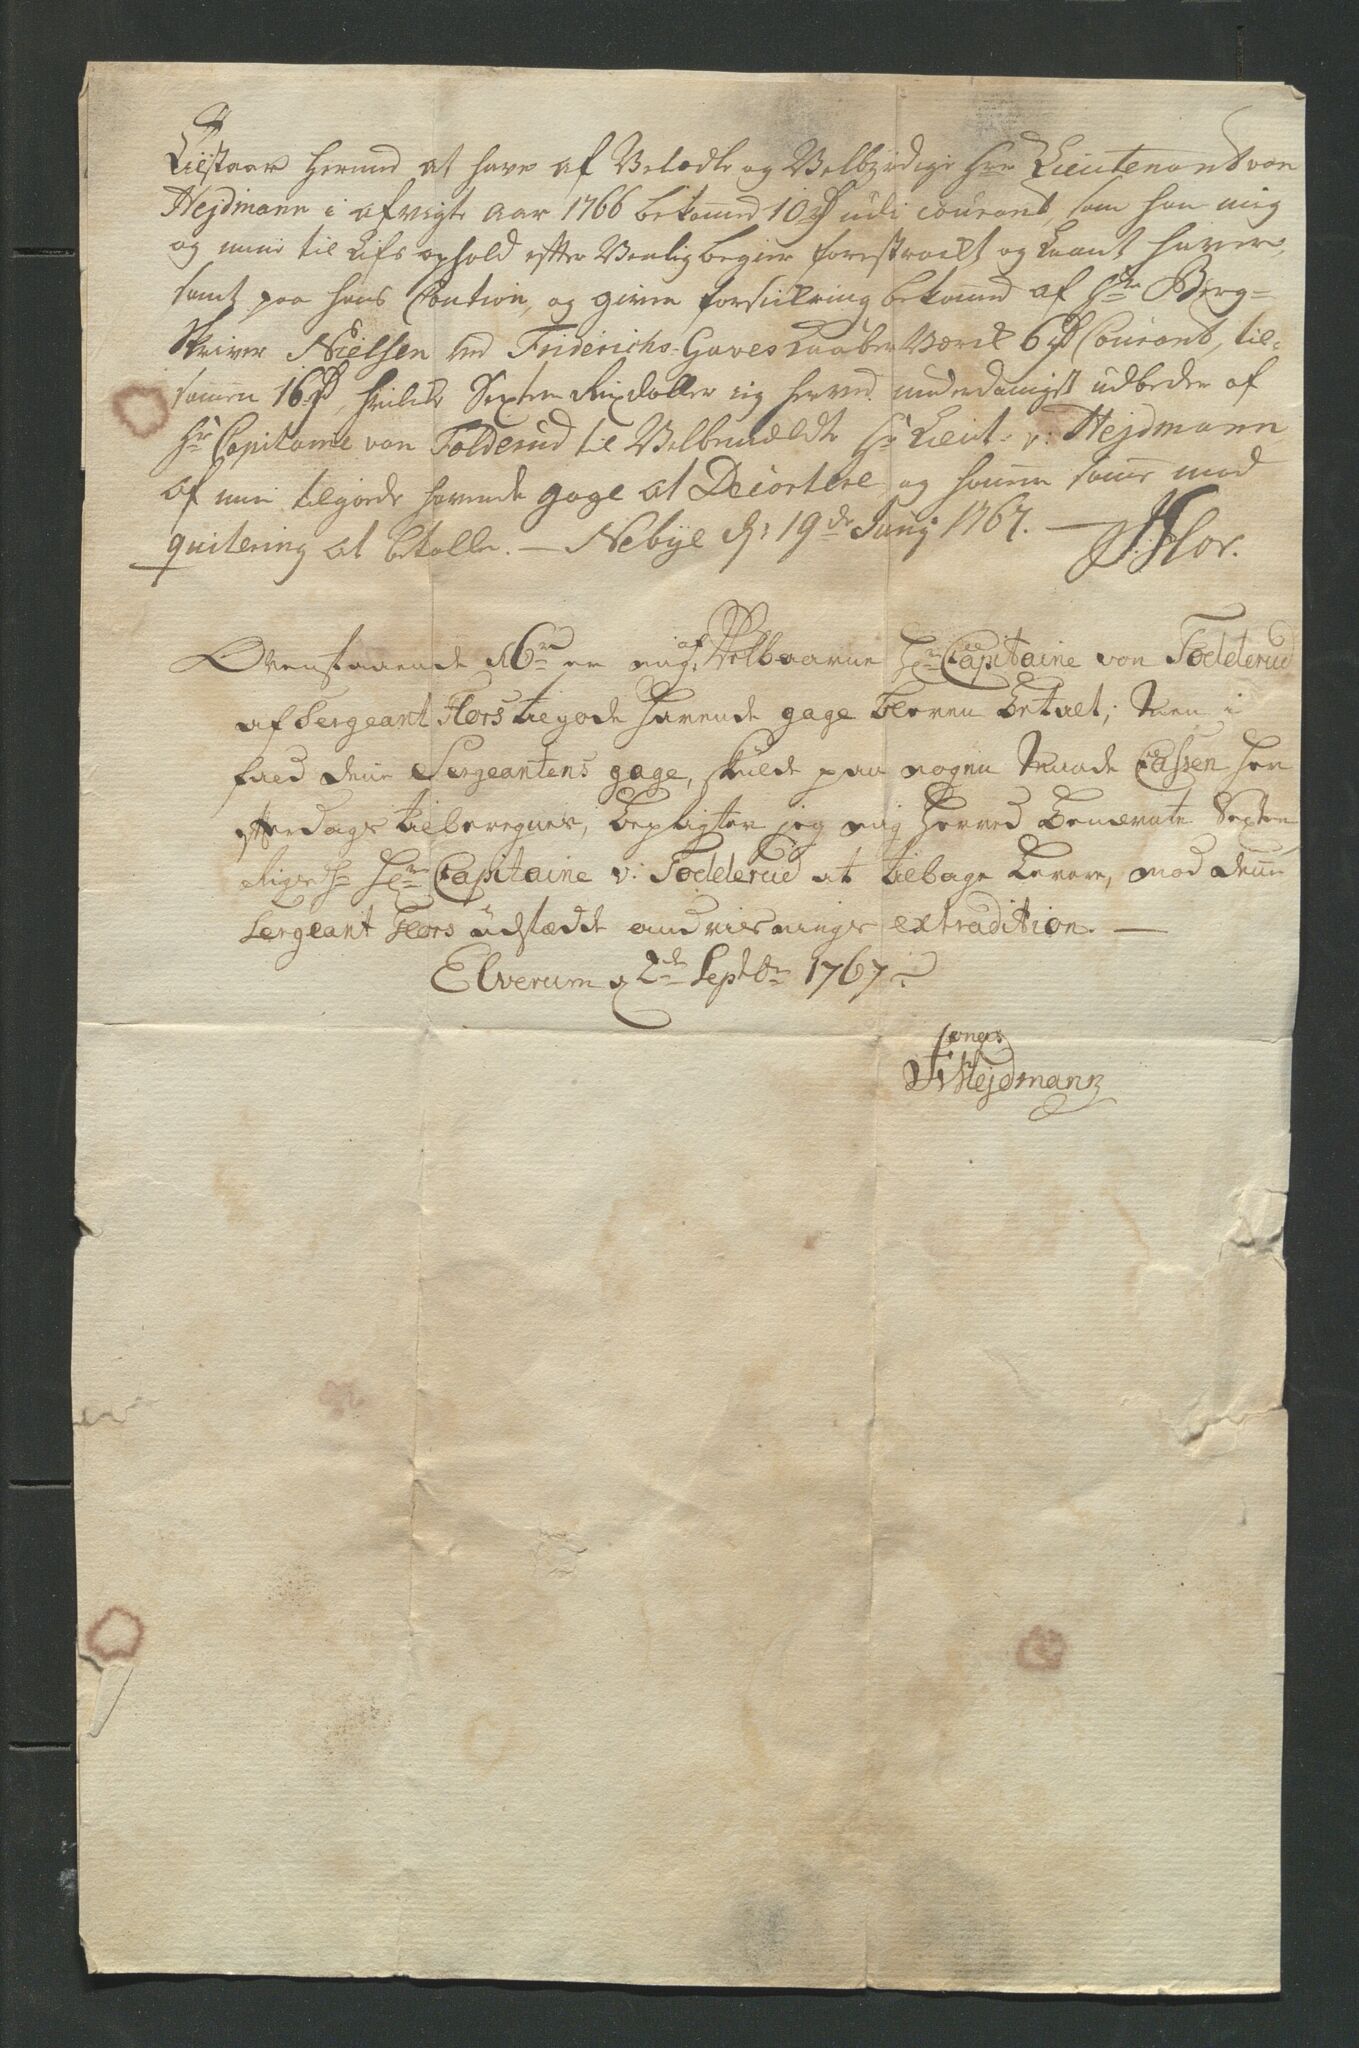 Tilstaar herved at have af Velædle og Velbyrdige Herr Lieutenant von
Hejdmann i afvigte Aar 1766 bekommed 10 rd udi courant, som han mig
og min til Lifs ophold efter Venlig begier forestrackt og Laant haver,
samt paa hans Caution, og given forsickring bekommed af Hr Berg-
Skriver Nielsen ved Friderichs-Gaves Kaaber Værck 6 rd Courant, til-
sammen 16 rd, hvilke Sexten Rixdaller ieg herved underdanigst udbeder af
Hr Capitaine van Tolderud til Velbemældte Hr Lieut: v: Hejdmann
af min tilgode havende gage at Decortere og ham samme mod
quitering at betalle. — Nebye d: 19de Junÿ 1767. — Flor.
Ovenstaaende 16 rd er mig af Velbaarne Herr Capitaine von Tødderud
af Sergeant Flors tilgode havende gage bleven betalt; Men i
fald denne Sergeantens gage, skulde paa nogen Maade Cassen her
efterdags tilberegnes, bepligter jeg mig herved benævnte Sexten
Rigsdr Herr Capitaine v: Tødderud at tilbage levere, mod denne
Sergeant Flors udstædte anvisnings extradition. —
Elverum d 2de Septbr 1767
Hejdmann